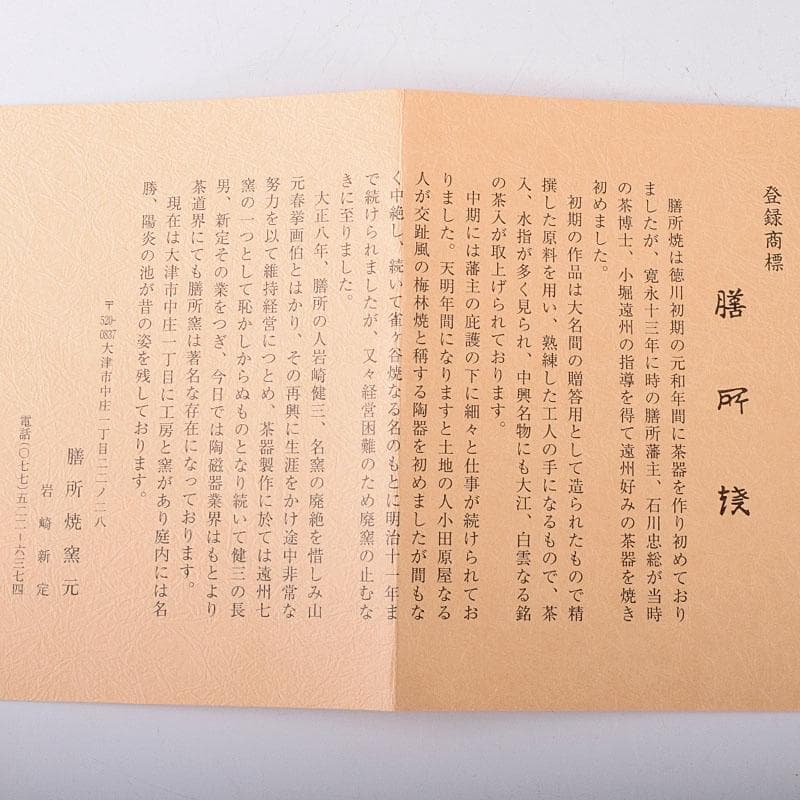 登録商標
膳所焼
膳所焼は徳川初期の元和年間に茶器を作り初めており
ましたが、寛永十三年に時の膳所藩主、石川忠総が当時
の茶博士、小堀遠州の指導を得て遠州好みの茶器を焼き
初めました。
初期の作品は大名間の贈答用として造られたもので精
撰した原料を用い、熟練した工人の手になるもので、茶
入、水指が多く見られ、中興名物にも大江、白雲なる銘
の茶入が取上げられております。
中期には藩主の庇護の下に細々と仕事が続けられてお
りました。天明年間になりますと土地の人小田原屋なる
人が交趾風の梅林焼と称する陶器を初めましたが間もな
く中絶し、続いて雀ヶ谷焼なる名のもとに明治十一年ま
で続けられましたが、又々経営困難のため廃窯の止むな
きに至りました。
大正八年、膳所の人岩崎健三、名窯の廃絶を惜しみ山
元春挙画伯とはかり、その再興に生涯をかけ途中非常な
努力を以て維持経営につとめ、茶器製作に於ては遠州七
窯の一つとして恥かしからぬものとなり続いて健三の長
男、新定その業をつぎ、今日では陶磁器業界はもとより
茶道界にても膳所窯は著名な存在になっております。
現在は大津市中庄一丁目に工房と窯があり庭内には名
勝、陽炎の池が昔の姿を残しております。
〒520-0837大津市中庄一丁目二二ノ二八
膳所焼窯元
岩崎新定
電話(〇七七)五二二―六三七四